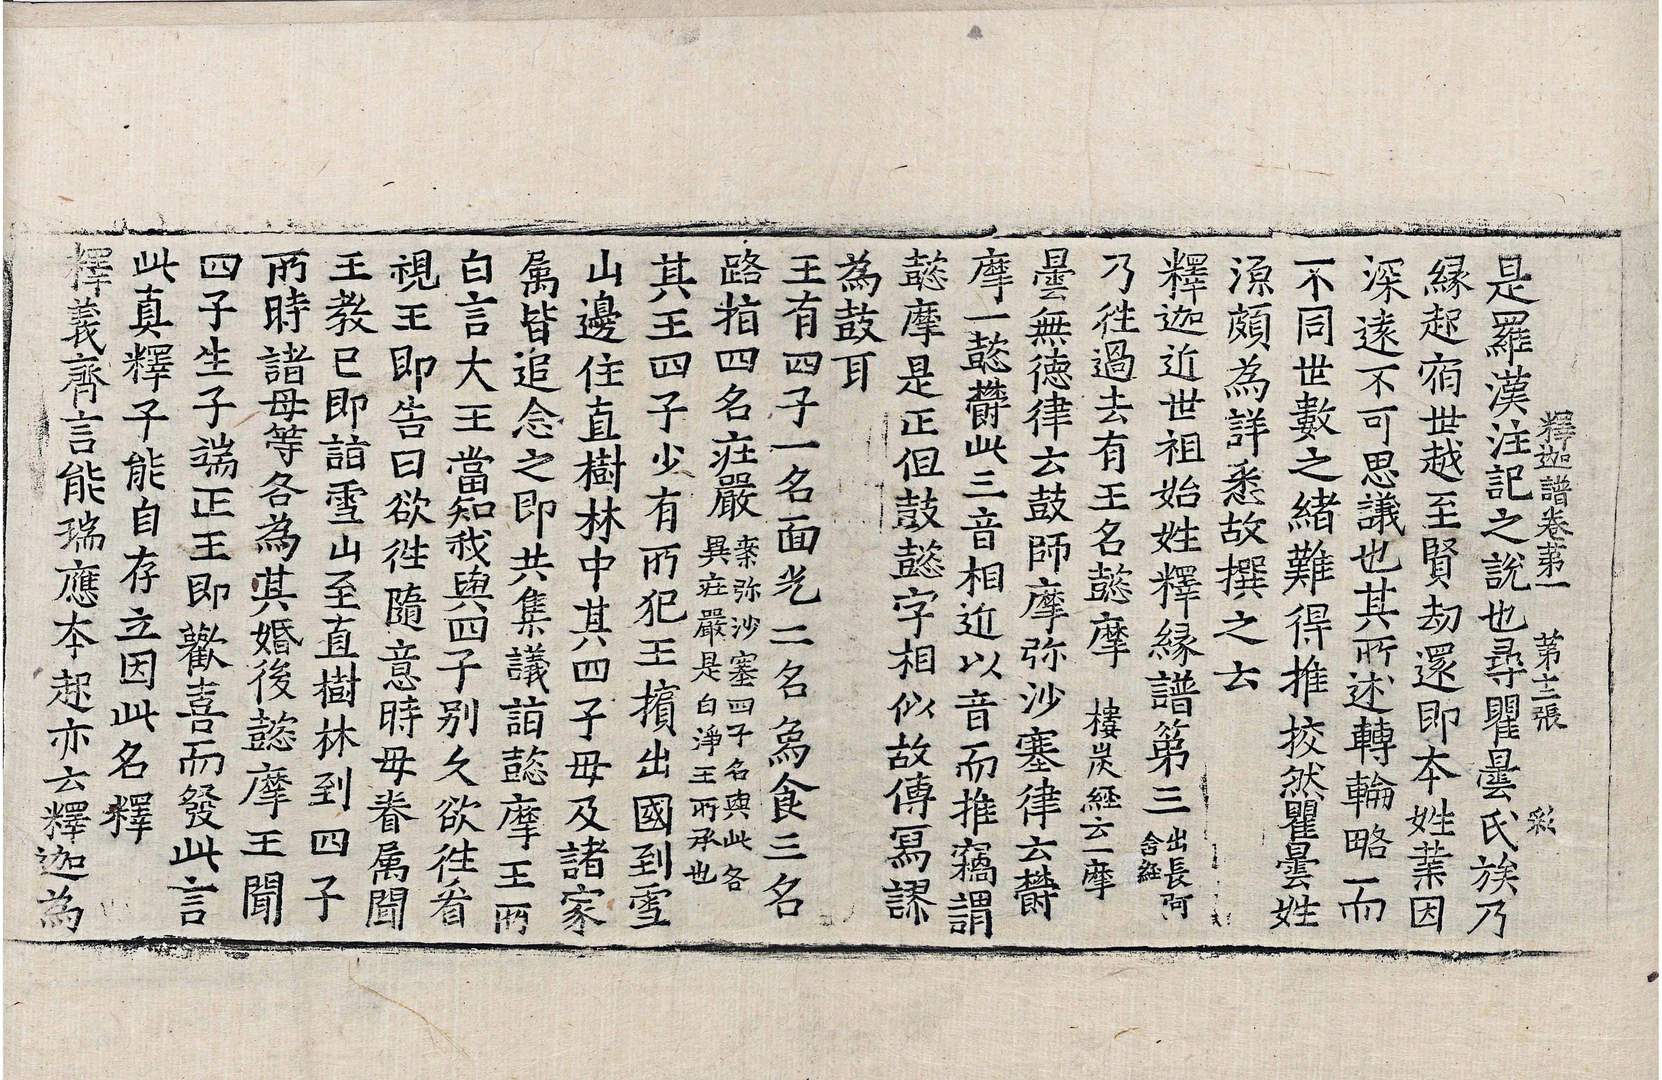 釋迦譜卷苐一　苐十二張　彩
是羅漢注記之說也尋瞿曇氏族乃
緣起宿世越至賢劫還即本姓業因
深遠不可思議也其所述轉輪略而
不同世數之緒難得推挍然瞿曇姓
源頗為詳悉故撰之云
釋迦近世祖始姓釋緣譜第三出長阿含経
乃徃過去有王名懿摩　樓炭經云一摩
曇無德律云鼓師摩弥沙塞律云欝
摩一懿欝此三音相近以音而推竊謂
懿摩是正但鼓懿字相似故傳冩謬
為鼓耳
王有四子一名面光二名為食三名
路指四名莊嚴案弥沙塞四子名與此各異莊嚴是白淨王所承也
其王四子少有所犯王擯出國到雪
山邊住直樹林中其四子母及諸家
属皆追念之即共集議詣懿摩王所
白言大王當知我與四子別久欲徃看
視王即告曰欲徃隨意時母眷属聞
王教已即詣雪山至直樹林到四子
所時諸母等各為其婚後懿摩王聞
四子生子端正王即歡喜而發此言
此真釋子能自存立因此名釋
釋義齊言能瑞應本起亦云釋迦為